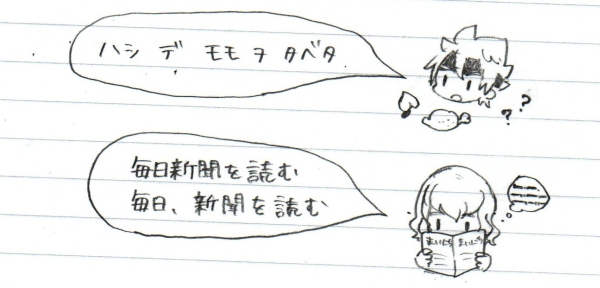 ハシ デ モモ ヲ タベタ
??
毎日新聞を読む
毎日、新聞を読む
まいにち まいにち